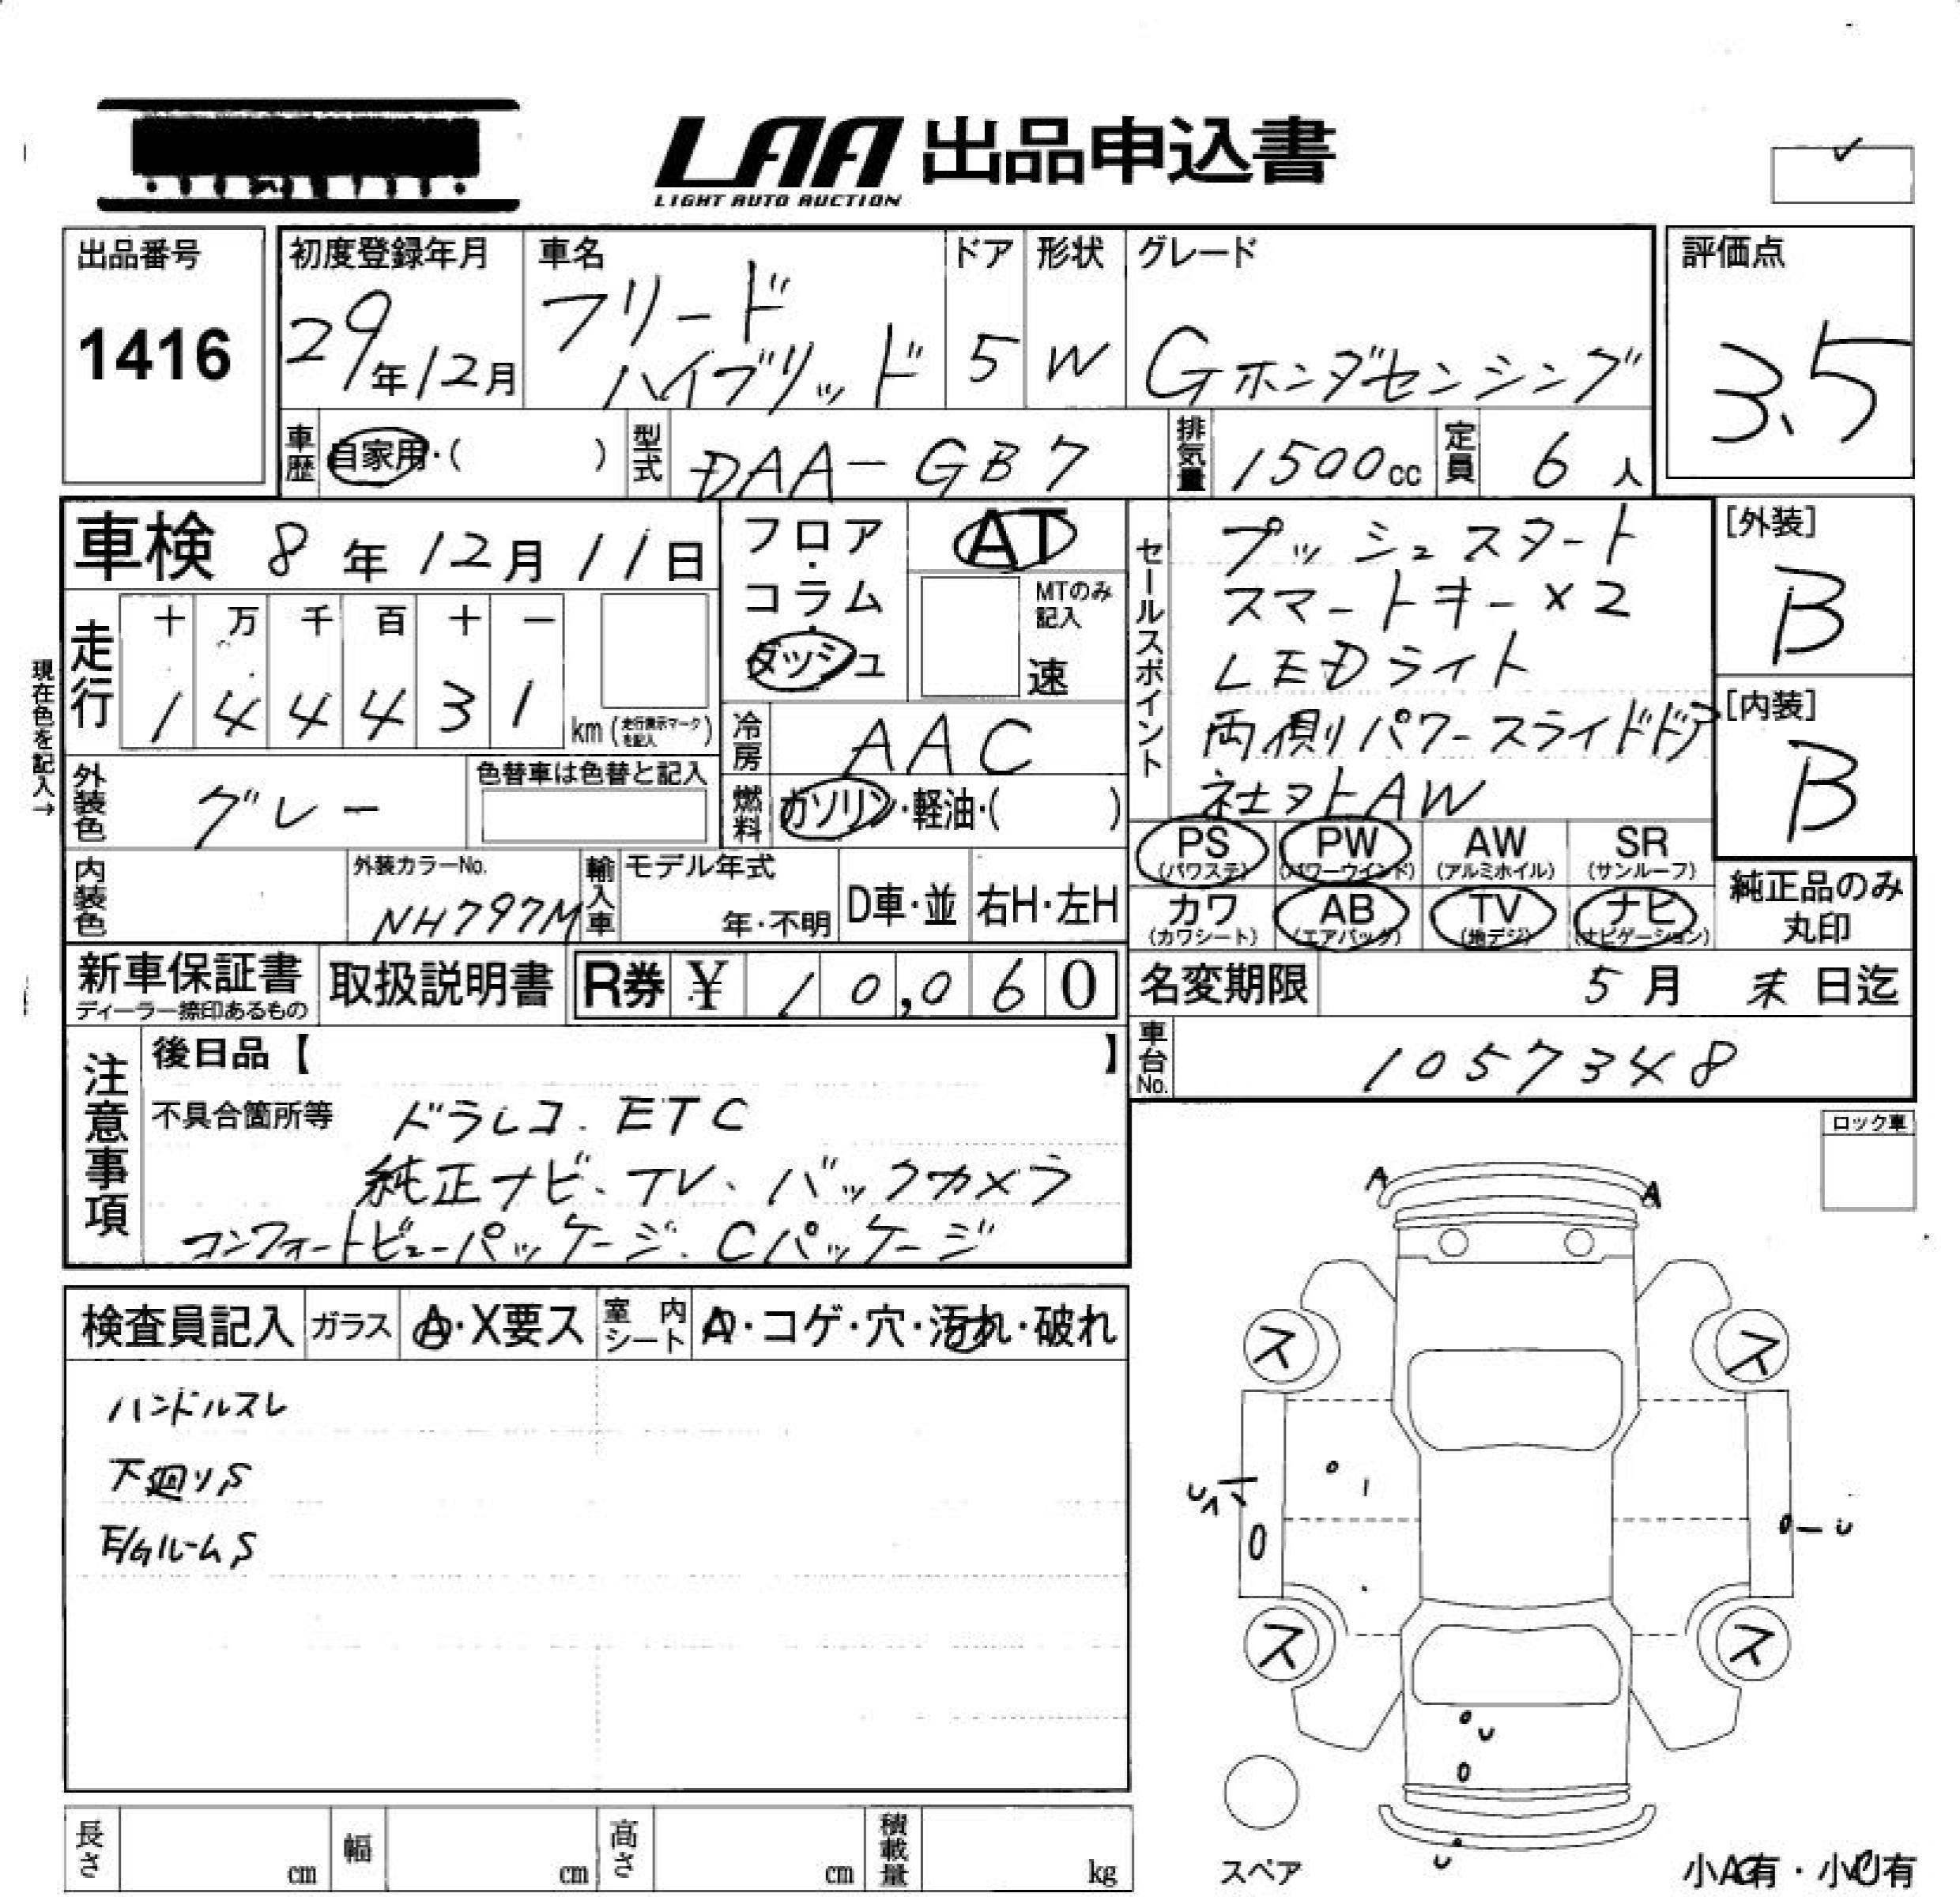 LAA 出品申込書
LIGHT AUTO AUCTION
出品番号
1416
初度登録年月
29年12月
車名
フリード
ハイブリッド
ドア
5
形状
W
グレード
Gホンダセンシング
評価点
3.5
車歴 自家用・( )
型式 DAA-GB7
排気量 1500cc
定員 6人
車検 8年12月11日
現在色を記入→
走行
十 万 千 百 十 一
1 4 4 4 3 1
km (走行表示マークを記入)
フロア・
コラム・
ダッシュ
AT
MTのみ
記入
速
冷房 AAC
燃料 ガソリン・軽油・( )
外装色 グレー
色替車は色替と記入
内装色
外装カラーNo.
NH797M
輸入車
モデル年式
年・不明
D車・並
右H・左H
セールスポイント
プッシュスタート
スマートキー×2
LEDライト
両側パワースライドドア
社外AW
[外装]
B
[内装]
B
PS (パワステ)
PW (パワーウインド)
AW (アルミホイル)
SR (サンルーフ)
カワ (カワシート)
AB (エアバック)
TV (地デジ)
ナビ (ナビゲーション)
純正品のみ
丸印
新車保証書
ディーラー捺印あるもの
取扱説明書
R券 ¥ 10,060
名変期限 5月末日迄
車台No. 1057348
注意事項
後日品【 】
不具合箇所等 ドラレコ. ETC
純正ナビ、TV、バックカメラ
コンフォートビューパッケージ. Cパッケージ
ロック車
検査員記入
ガラス A・X要ス
室内シート A・コゲ・穴・汚れ・破れ
ハンドルスレ
下廻りS
E/GルームS
A
A
ス
ス
U
U
ス
ス
U
U
スペア
小AG有・小U有
長さ cm
幅 cm
高さ cm
積載量 kg